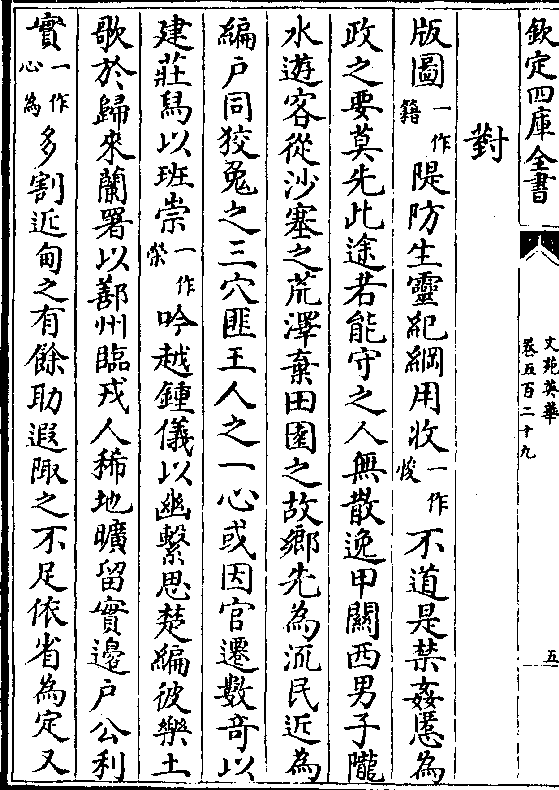 欽定四庫全書
文苑英華
卷五百二十九
五
對
版圖一作籍隄防生靈紀綱用收一作悛不道是禁姦慝為
政之要莫先此途若能守之人無散逸甲關西男子隴
水遊客從沙塞之荒澤棄田園之故鄉先為流民近為
編戶同狡兔之三穴匪王人之一心或因官遷數奇以
建莊舄以班崇一作榮吟越鍾儀以幽繫思楚編彼樂土
歌於歸來蘭署以鄯州臨戎人稀地曠留實邊戶公利
實一作心為多割近甸之有餘助遐陬之不足依省為定又